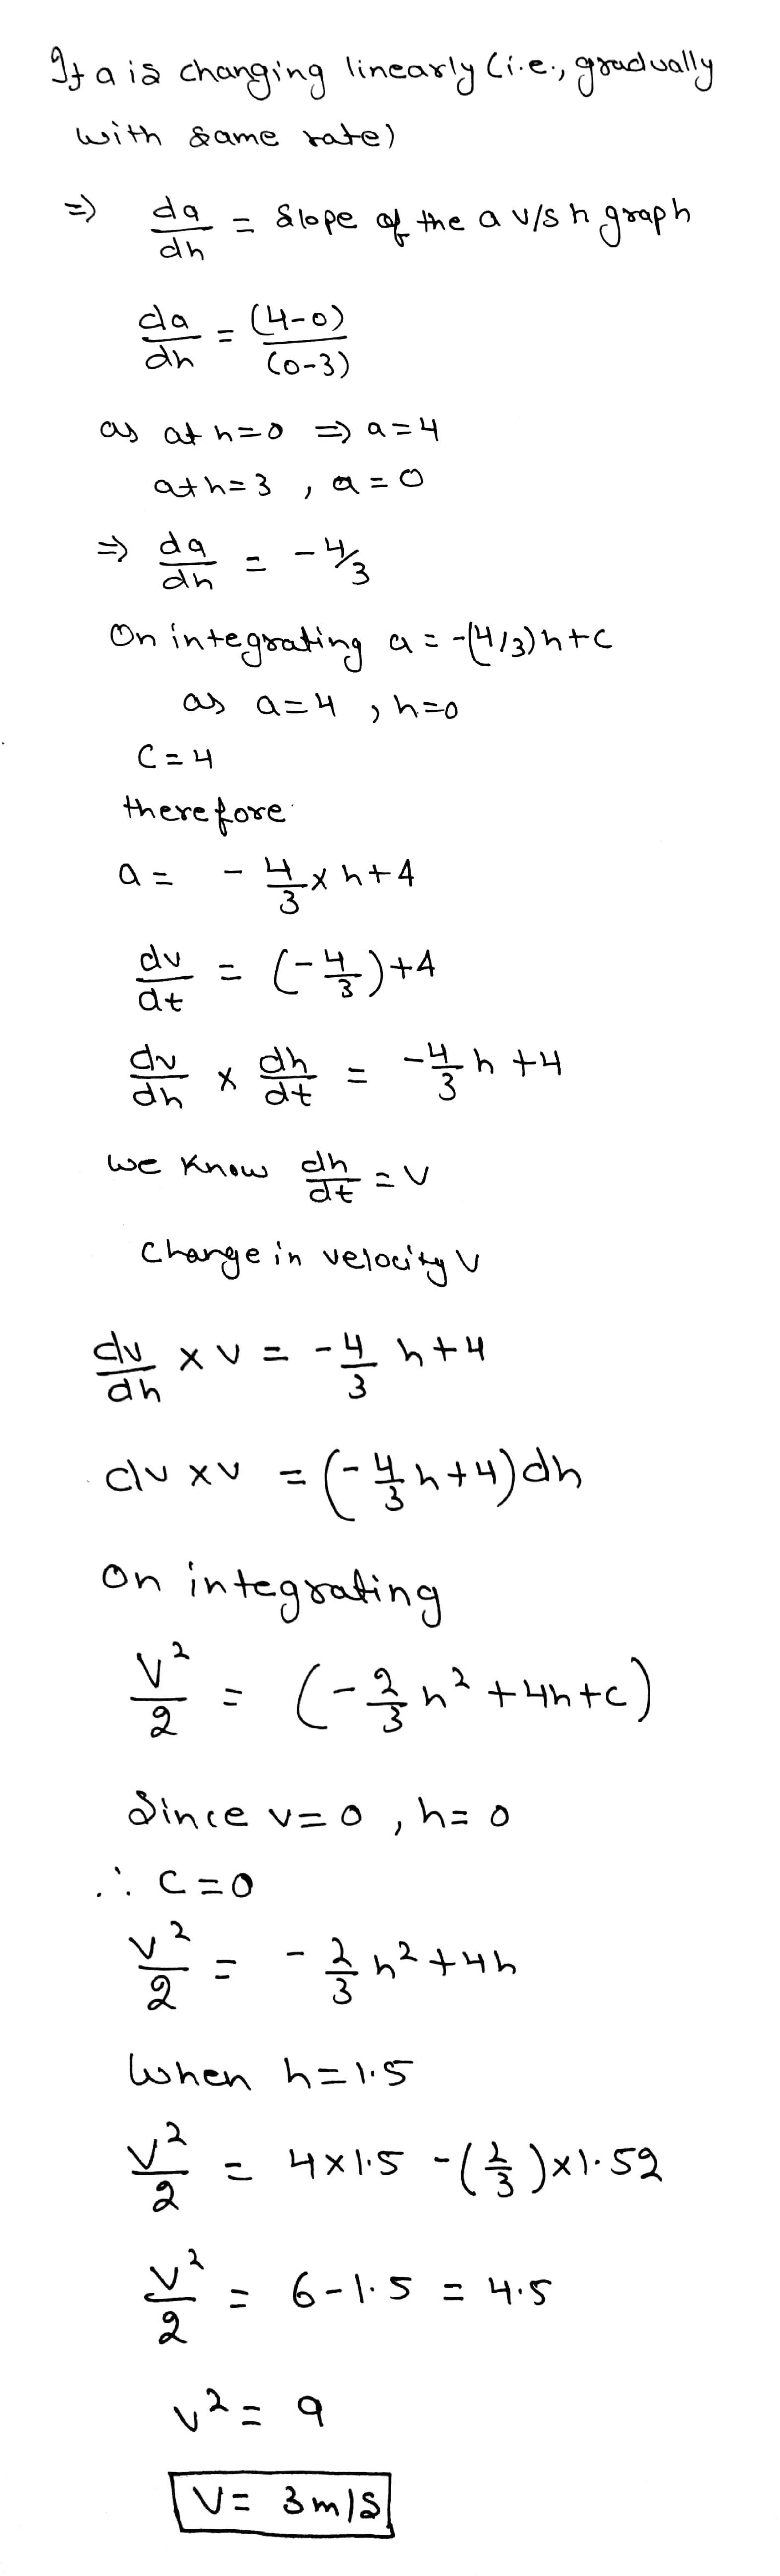 If a is changing linearly (i.e., gradually
with same rate)
=> da/dh = slope of the a v/s h graph
da/dh = (4-0)/(0-3)
as at h=0 => a=4
at h=3 , a=0
=> da/dh = -4/3
On integrating a = -(4/3)h+c
as a=4 , h=0
C=4
therefore
a = -4/3 x h+4
dv/dt = (-4/3)+4
dv/dh x dh/dt = -4/3 h +4
we know dh/dt = v
change in velocity v
dv/dh x v = -4/3 h+4
dv x v = (-4/3 h+4) dh
On integrating
v²/2 = (-2/3 h² +4h+c)
Since v=0 , h=0
∴ C=0
v²/2 = -2/3 h²+4h
When h=1.5
v²/2 = 4x1.5 -(2/3)x1.52
v²/2 = 6-1.5 = 4.5
v² = 9
V= 3m/s